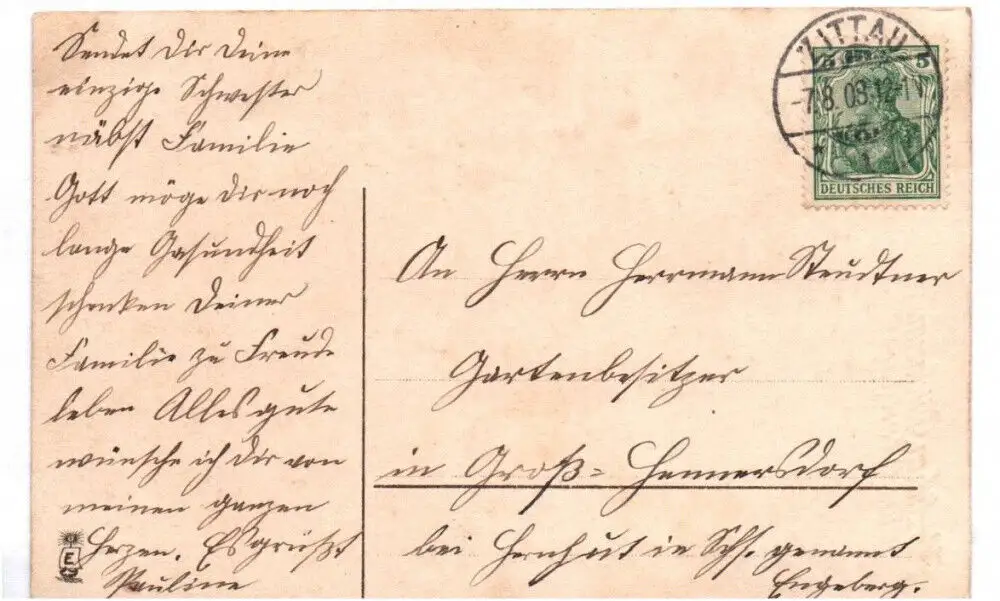 Sendet Dir Deine
einzige Schwester
näbst Familie
Gott möge Dir noch
lange Gesundheit
schenken Deiner
Familie zu Freude
leben Alles gute
wünsche ich Dir von
meinen ganzen
Herzen. Es grüßt
Pauline
E
ZITTAU
5
-7.8.08.
DEUTSCHES REICH
An Herrn Herrmann Steudtner
Gartenbesitzer
in Groß=Hennersdorf
bei Hernhut in Schs. genannt
Engeberg.